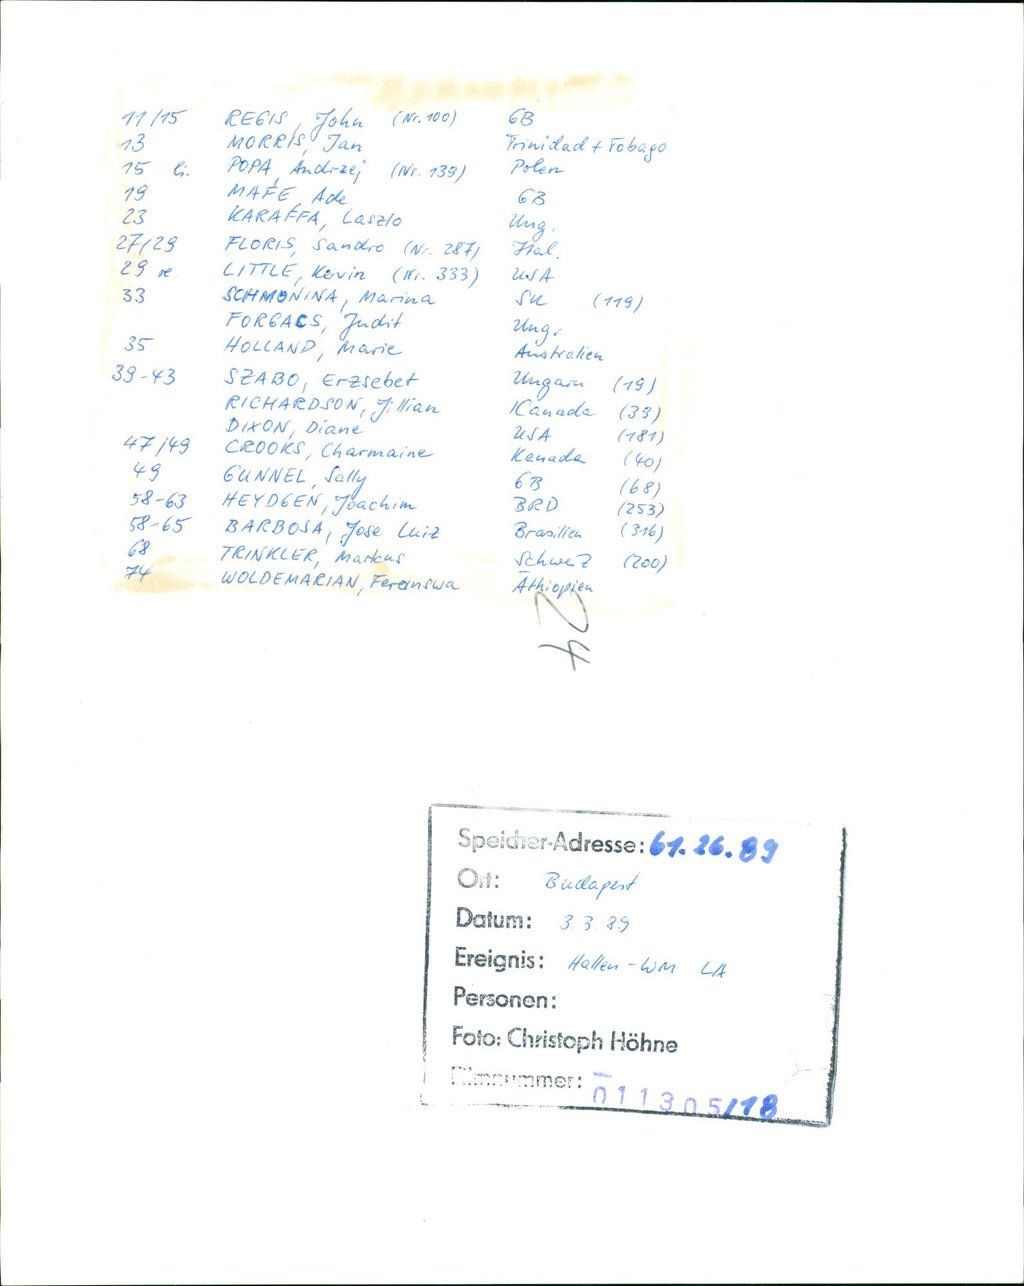 11/15 REGIS, John (Nr. 100) GB
13 MORRIS, Ian Trinidad + Tobago
15 li. POPA, Andrzej (Nr. 139) Polen
19 MAFE, Ade GB
23 KARAFFA, Laszlo Ung.
27/29 FLORIS, Sandro (Nr. 287) Ital.
29 re LITTLE, Kevin (Nr. 333) USA
33 SCHMONINA, Marina SU (119)
FORGACS, Judit Ung.
35 HOLLAND, Marie Australien
39-43 SZABO, Erzsebet Ungarn (19)
RICHARDSON, Jillian Kanada (39)
DIXON, Diane USA (181)
47/49 CROOKS, Charmaine Kanada (40)
49 GUNNEL, Sally GB (68)
58-63 HEYDGEN, Joachim BRD (253)
58-65 BARBOSA, Jose Luiz Brasilien (316)
68 TRINKLER, Markus Schweiz (200)
74 WOLDEMARIAN, Feranswa Äthiopien
24
Speicher-Adresse: 61.26.89
Ort: Budapest
Datum: 3.3.89
Ereignis: Hallen-WM LA
Personen:
Foto: Christoph Höhne
Filmnummer: 011305/18